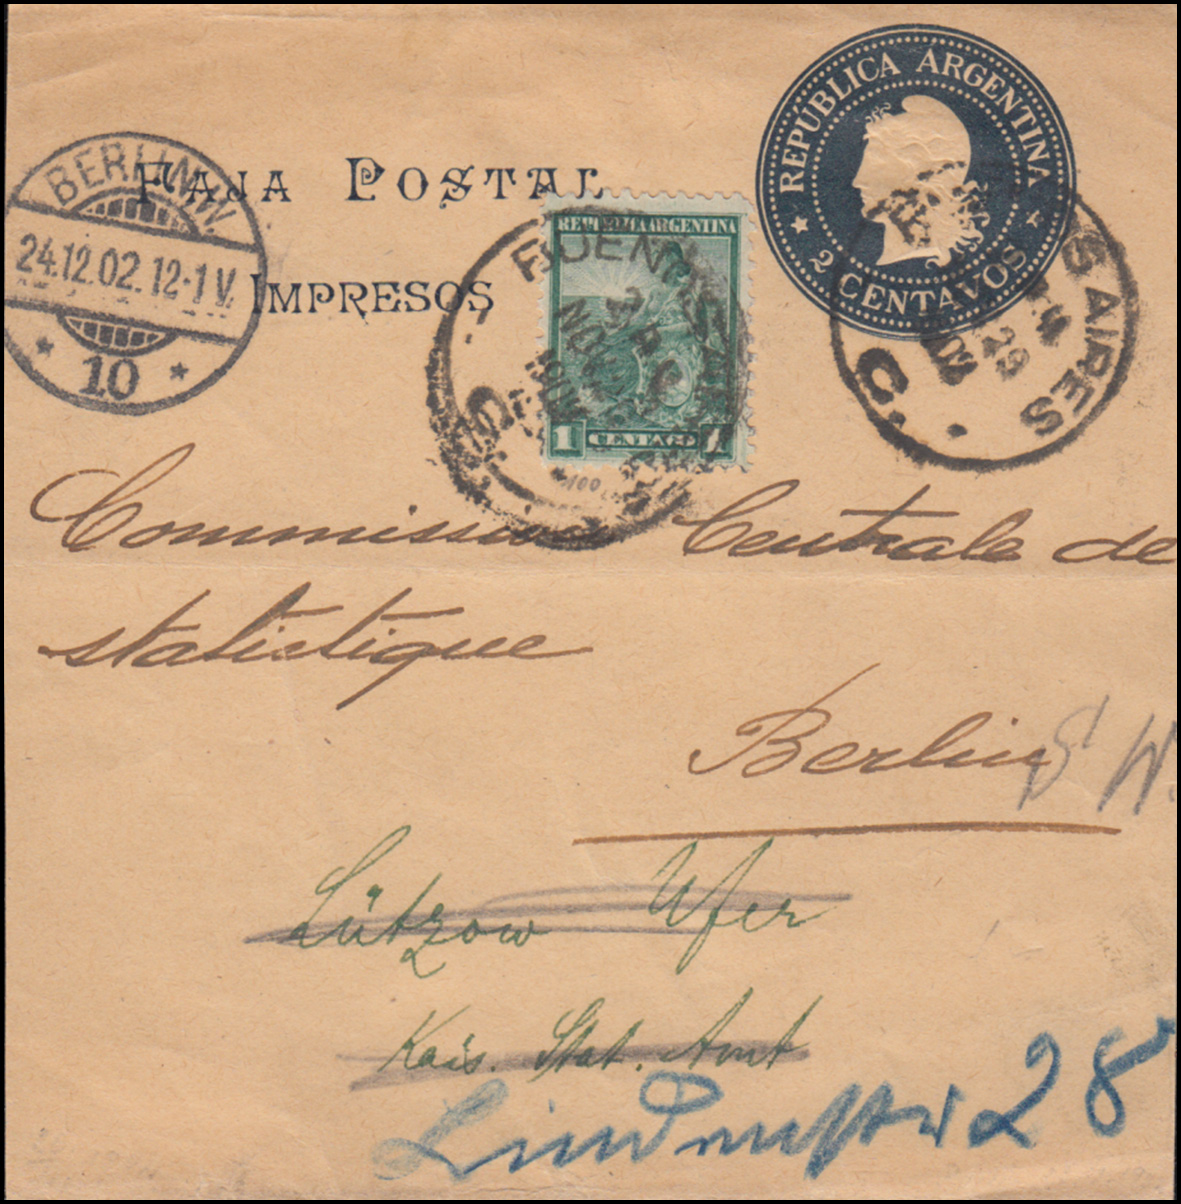 REPÚBLICA ARGENTINA
2 CENTAVOS
FAJA POSTAL
IMPRESOS
BERLIN W.
24.12.02.12-1V.
10
REPUBLICA ARGENTINA
1 CENTAVO 1
BUENOS AIRES
NOV
BUENOS AIRES
29
C.
Commission Centrale de
statistique
Berlin
S W.
Lützow Ufer
Kais. Stat. Amt
Lindenstr 28